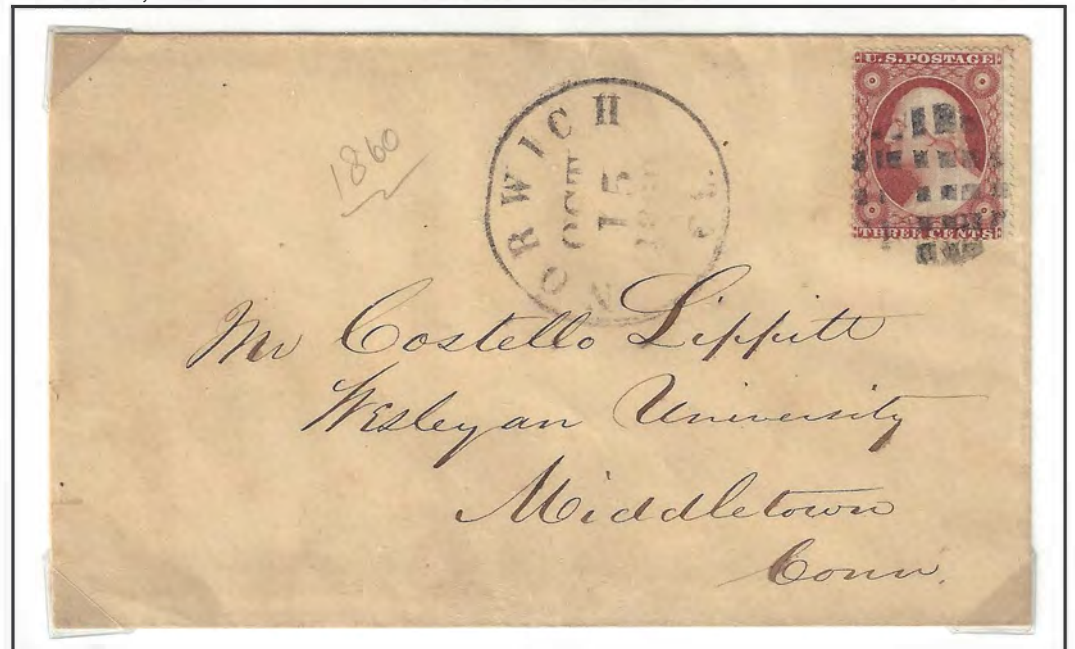 U.S.POSTAGE
THREE CENTS
NORWICH
OCT
15
1860
Mr Costello Lippitt
Wesleyan University
Middletown
Conn.